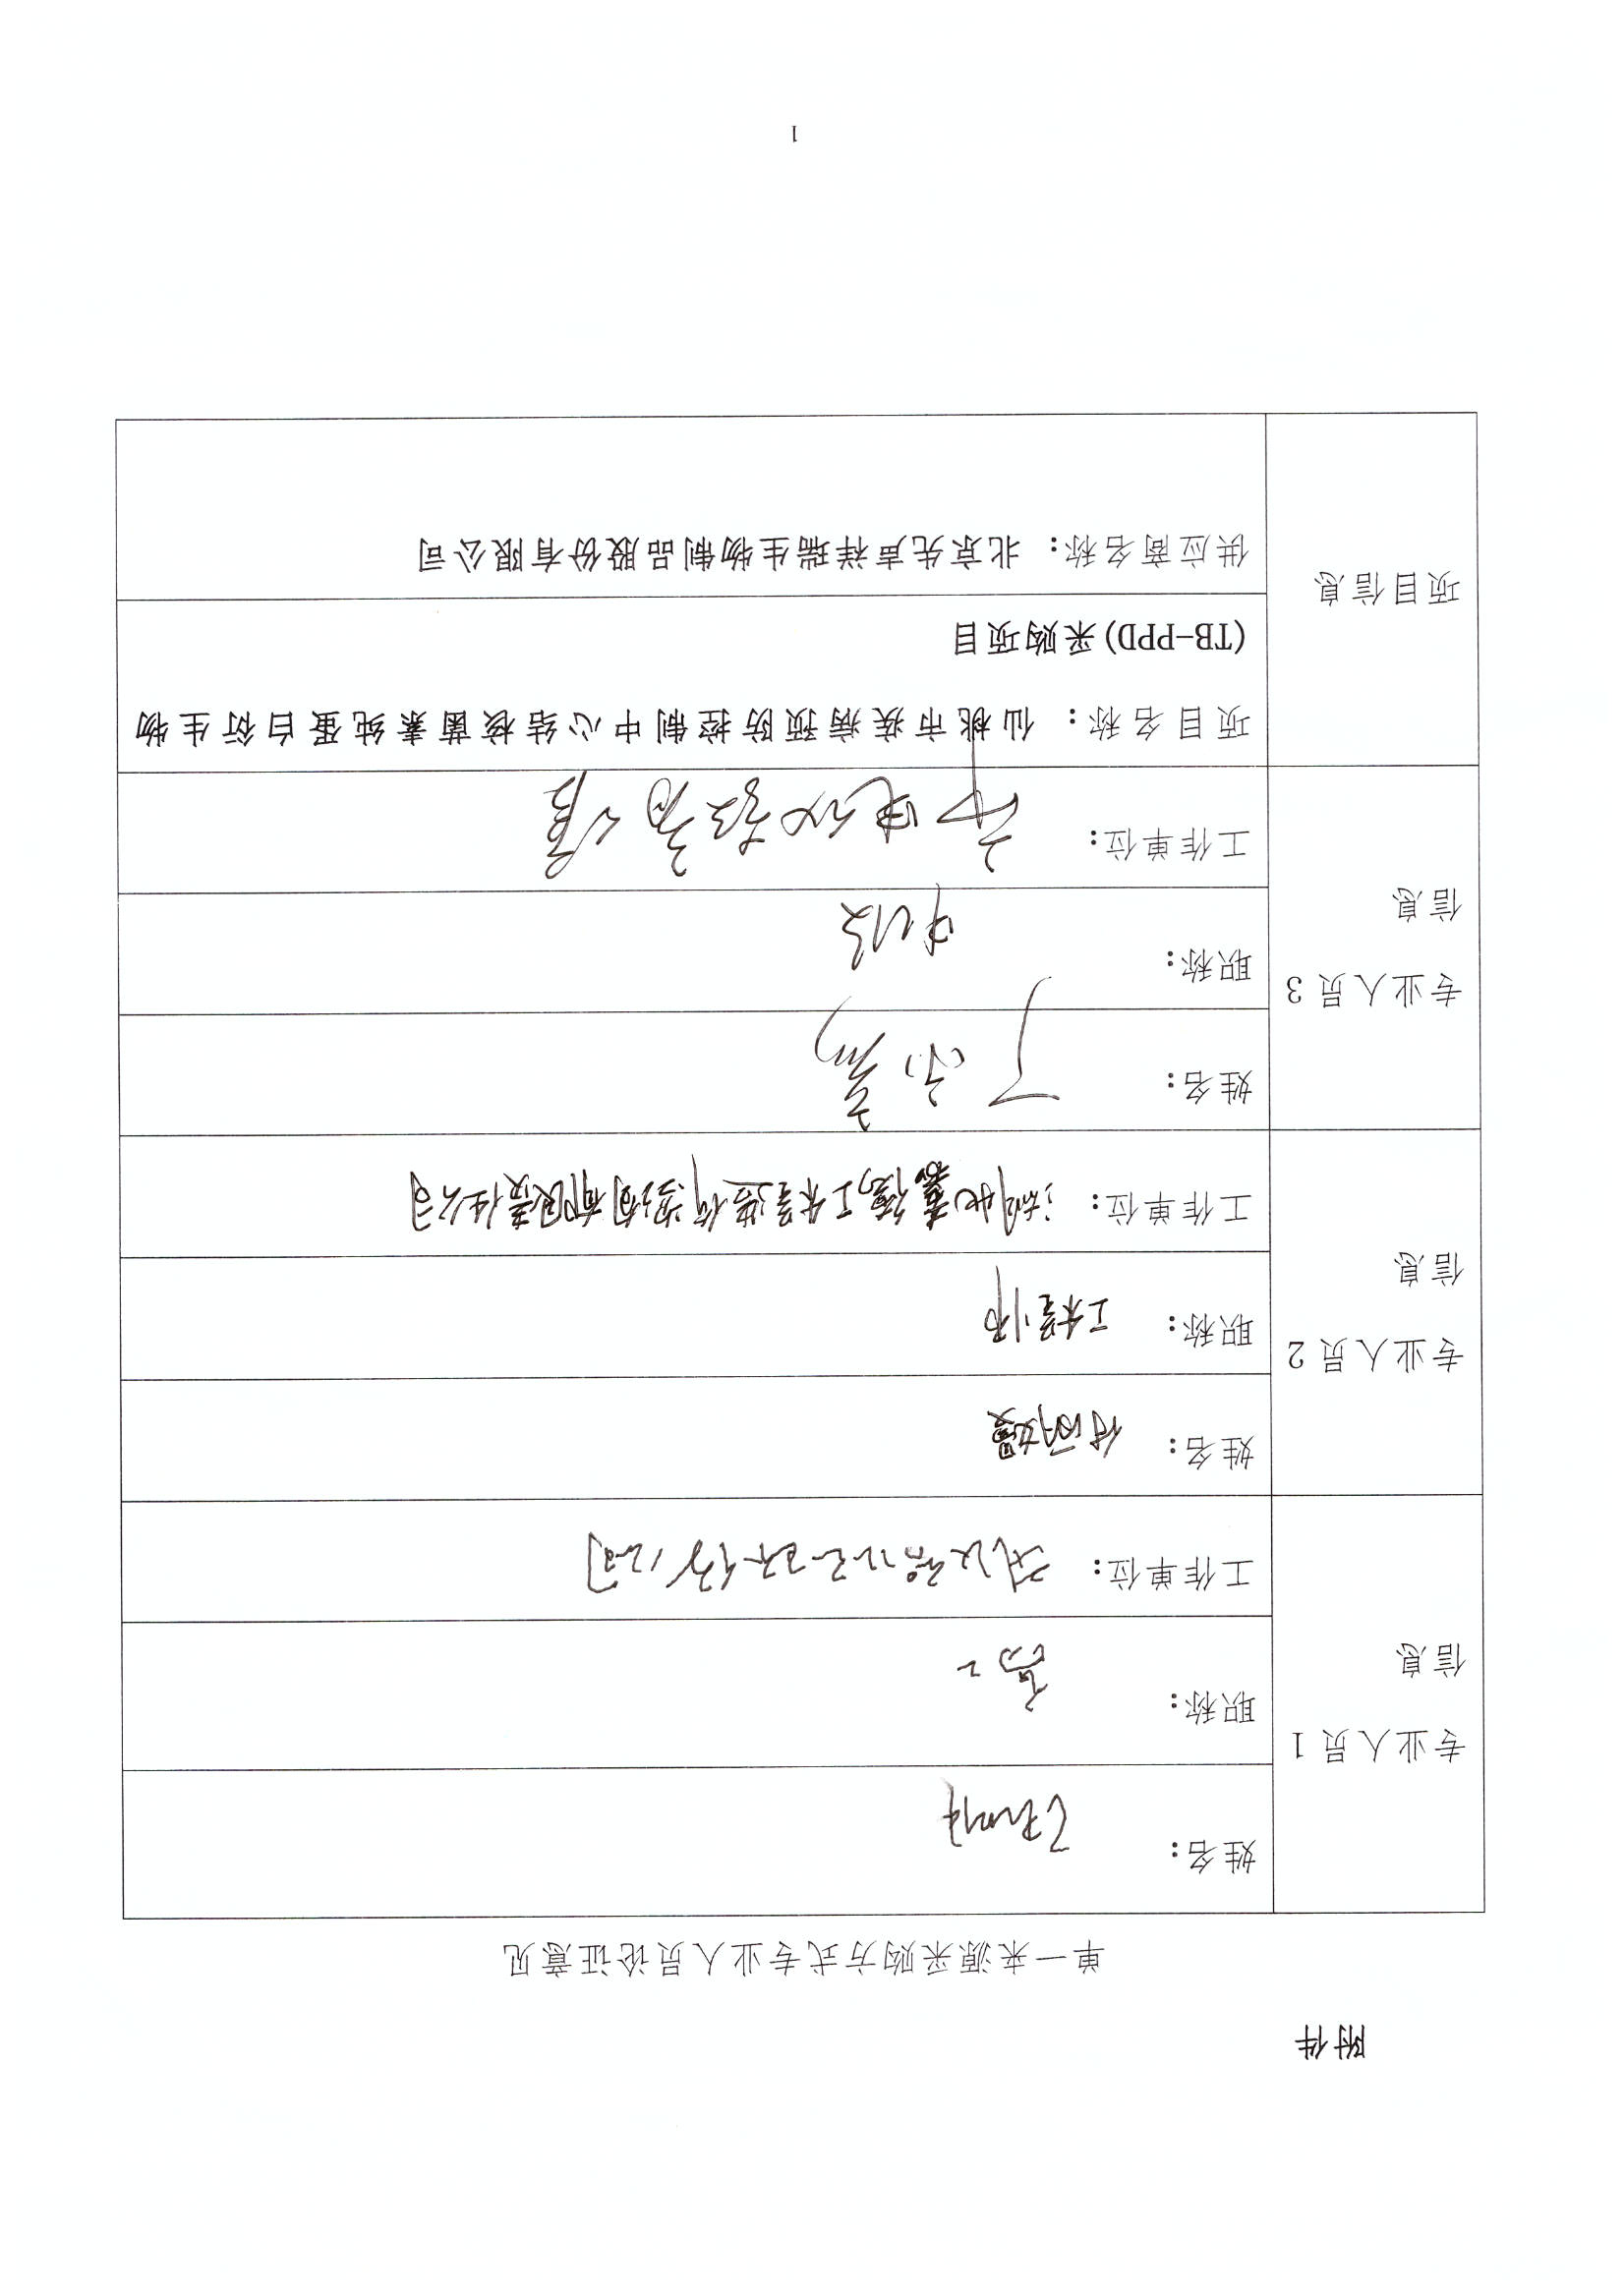 附件
单一来源采购方式专业人员论证意见
专业人员 1
信息
姓名：
职称： 高工
工作单位：
专业人员 2
信息
姓名： 付丽嫚
职称： 工程师
工作单位： 湖北嘉德工程造价咨询有限责任公司
专业人员 3
信息
姓名：
职称： 中级
工作单位：
项目信息
项目名称： 仙桃市疾病预防控制中心结核菌素纯蛋白衍生物
(TB-PPD)采购项目
供应商名称： 北京先声祥瑞生物制品股份有限公司
1